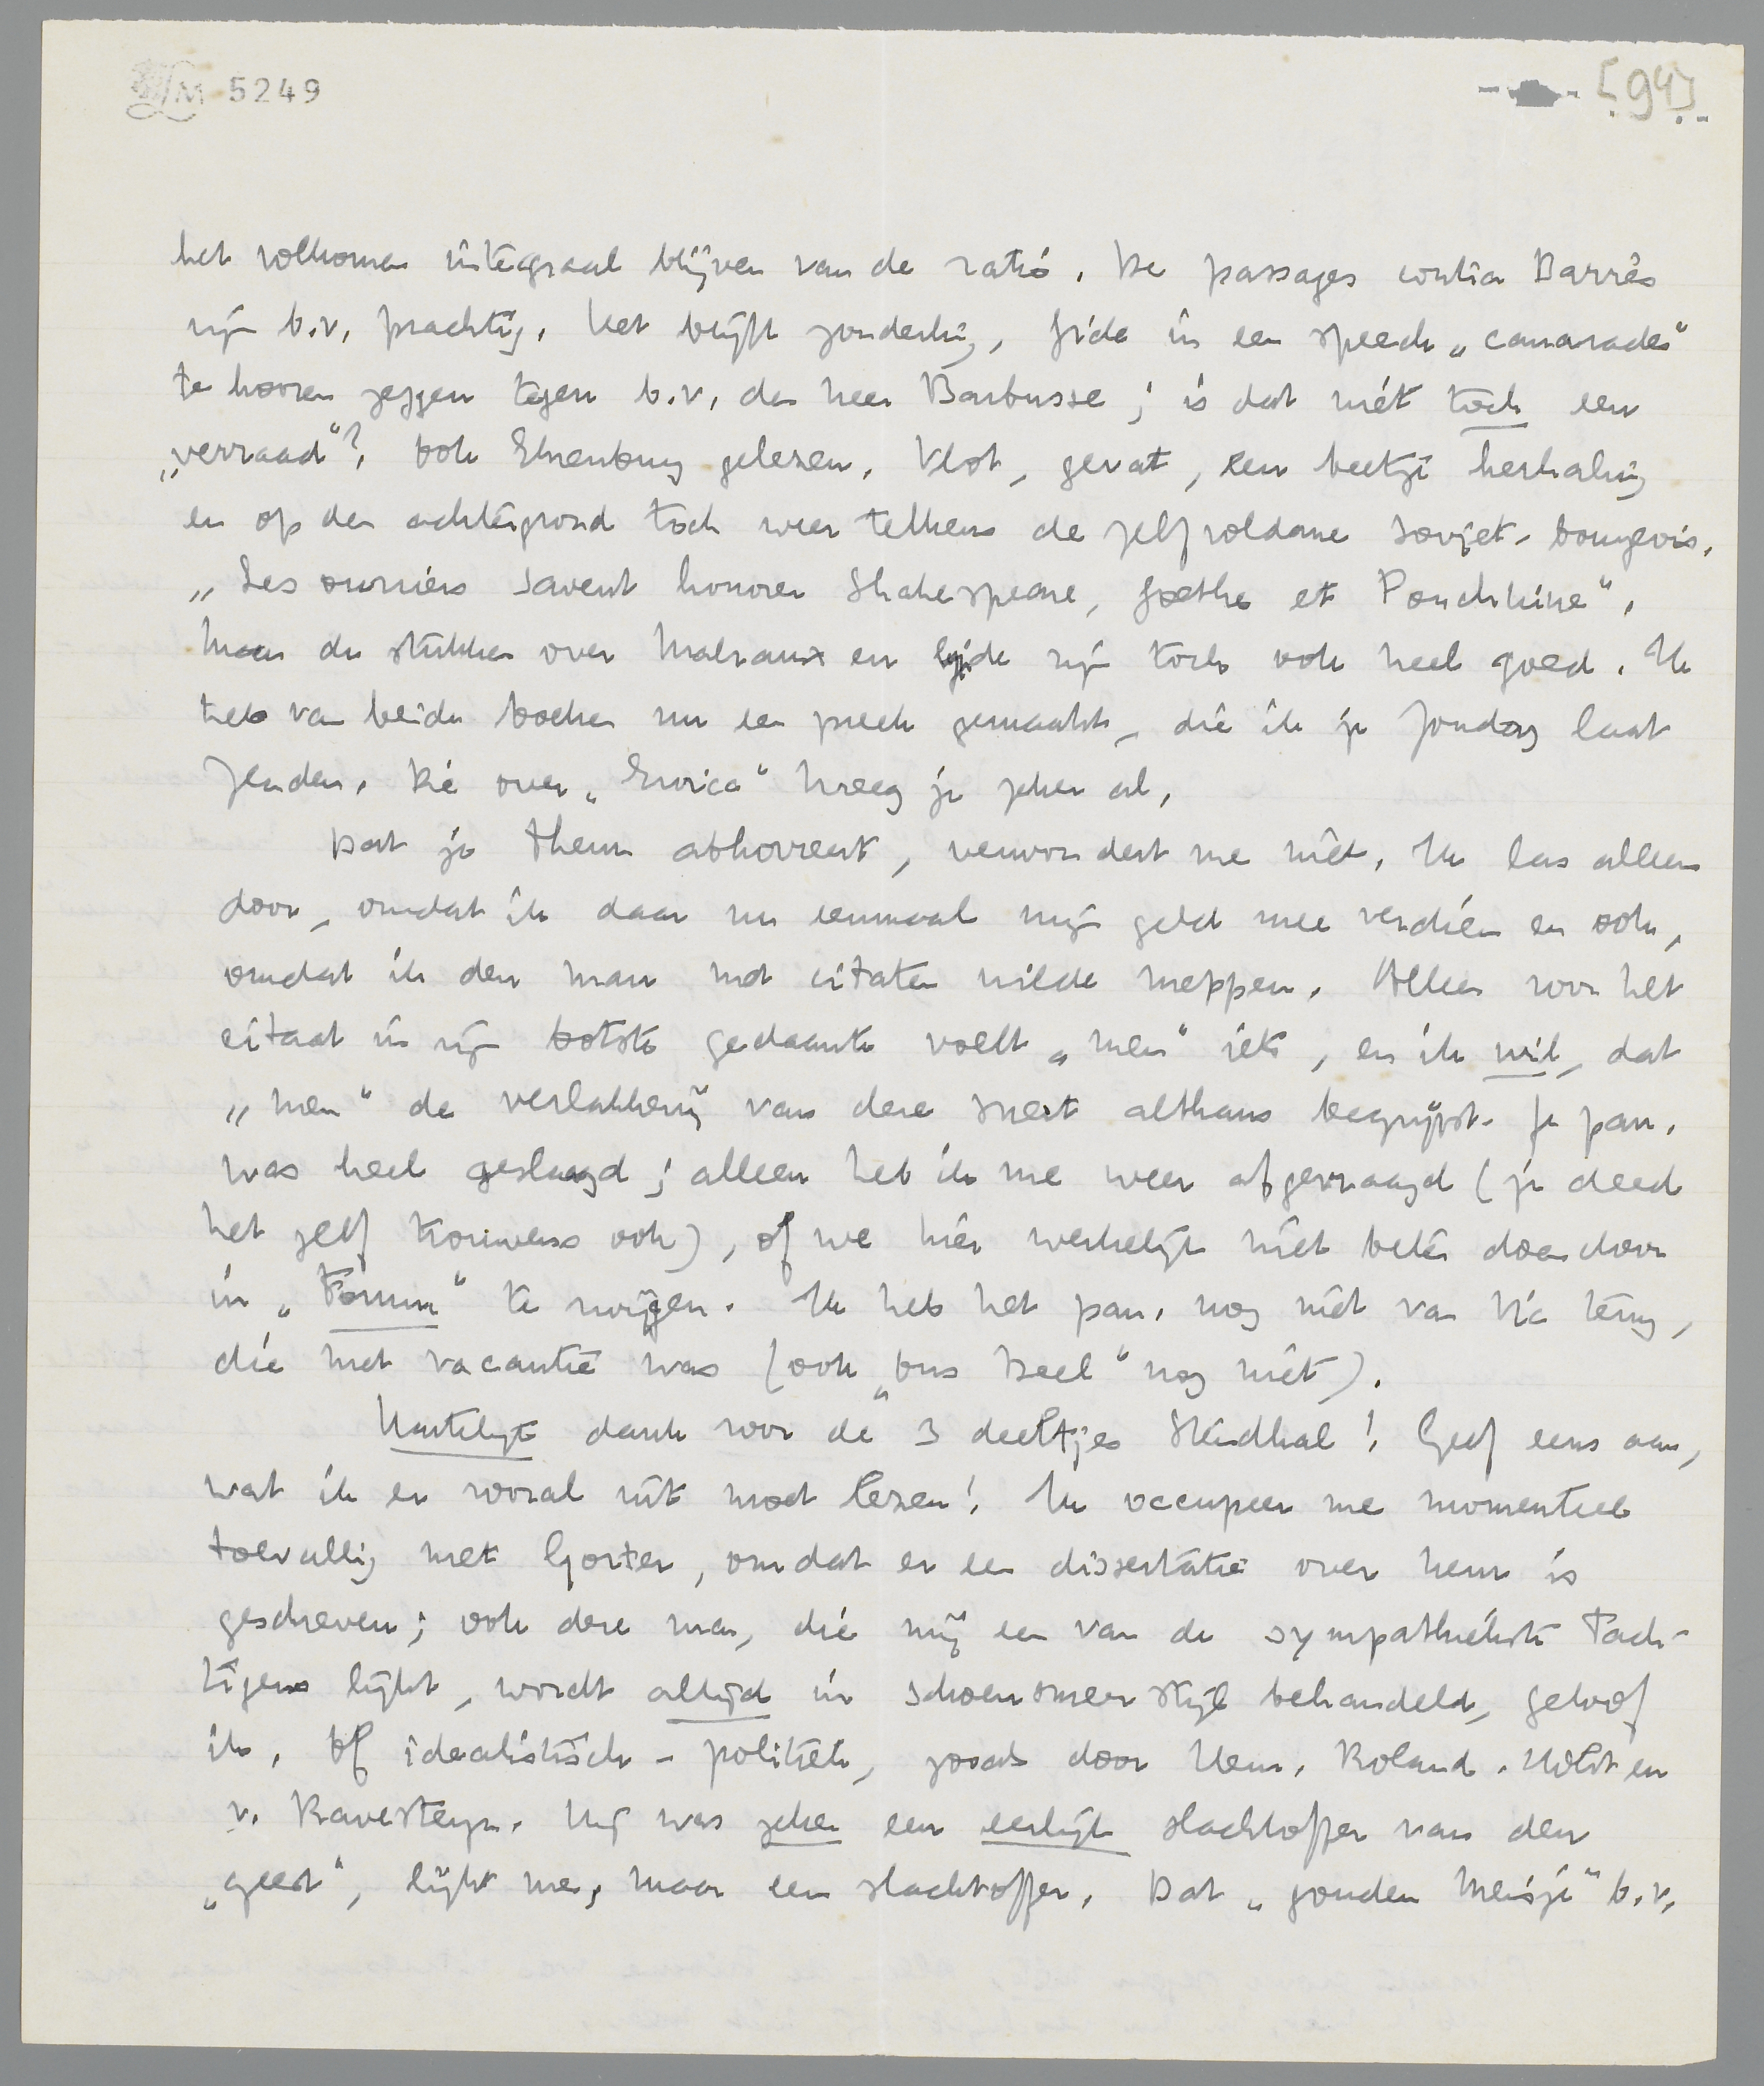 LM 5249
[94]
het volkomen integraal blijven van de ratio. De passages contra Barrès
zijn b.v. prachtig. Het blijft zonderling, Gide in een speech „camarades”
te hooren zeggen tegen b.v. den heer Barbusse; is dat niét toch een
„verraad”? Ook Ehrenburg gelezen. Vlot, gevat, een beetje herhaling
en op den achtergrond toch weer telkens de zelfvoldane Sovjet-bourgeois.
„Les ouvriers savent honorer Shakespeare, Goethe et Pouchkine”.
Maar de stukken over Malraux en Gide zijn toch ook heel goed. Ik
heb van beide boeken nu een preek gemaakt, die ik je Zondag laat
zenden. Die over „Enrica” kreeg je zeker al.
Dat je Thern abhorreert, verwondert me niet. Ik las alleen
door, omdat ik daar nu eenmaal mijn geld mee verdien en ook,
omdat ik den man met citaten wilde meppen. Alleen voor het
citaat in zijn botste gedaante voelt „men” iets, en ik wil, dat
„men” de verlakkerij van deze snert althans begrijpt. Je pan.
was heel geslaagd; alleen heb ik me weer afgevraagd (je deed
het zelf trouwens ook), of we hier werkelijk niet beter doen door
in „Forum” te zwijgen. Ik heb het pan. nog niet van Vic terug,
die met vacantie was (ook „Ons Deel” nog niet).
Hartelijk dank voor de 3 deeltjes Stendhal! Geef eens aan,
wat ik er vooral uit moet lezen! Ik occupeer me momenteel
toevallig met Gorter, omdat er een dissertatie over hem is
geschreven; ook deze man, die mij een van de sympathiekste Tach-
tigers lijkt, wordt altijd in schoensmeerstijl behandeld, geloof
ik. Of idealistisch-politiek, zooals door Henr. Roland. Holst en
v. Ravesteyn. Hij was zeker een eerlijk slachtoffer van den
„geest”, lijkt me, maar een slachtoffer. Dat „gouden meisje” b.v.